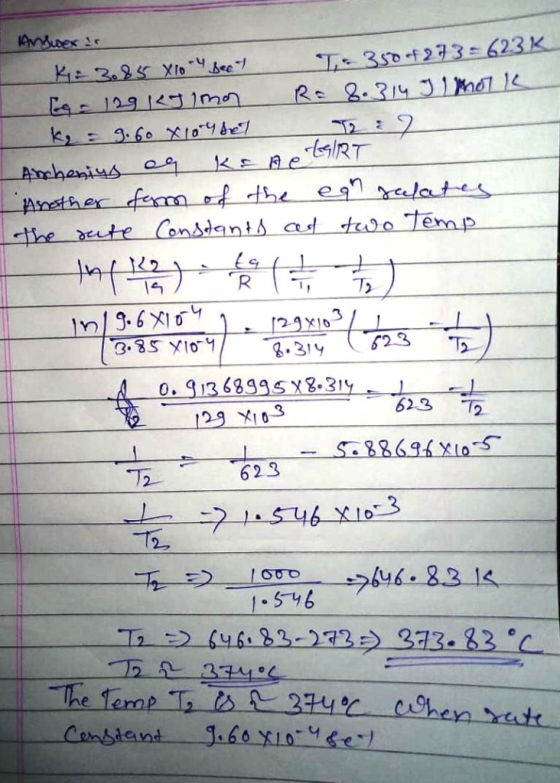 Answer :-
K1 = 3.85 X10-4 sec-1 T1 = 350+273 = 623K
Eq = 129 KJ/mol R = 8.314 J/mol K
K2 = 9.60 X10-4 se-1 T2 = ?
Arrhenius eq K = A e-Eq/RT
Another form of the eqn relates
the rate Constants at two Temp
ln(K2/K1) = Eq/R (1/T1 - 1/T2)
ln(9.6X10-4/3.85 X10-4) = 129X10^3/8.314 (1/623 - 1/T2)
0.91368995X8.314/129 X10^3 = 1/623 - 1/T2
1/T2 = 1/623 - 5.88696X10-5
1/T2 => 1.546 X10-3
T2 => 1000/1.546 =>646.83 K
T2 => 646.83-273=> 373.83 °C
T2 ≈ 374°C
The Temp T2 is ≈ 374°C when rate
Constant 9.60X10-4 se-1